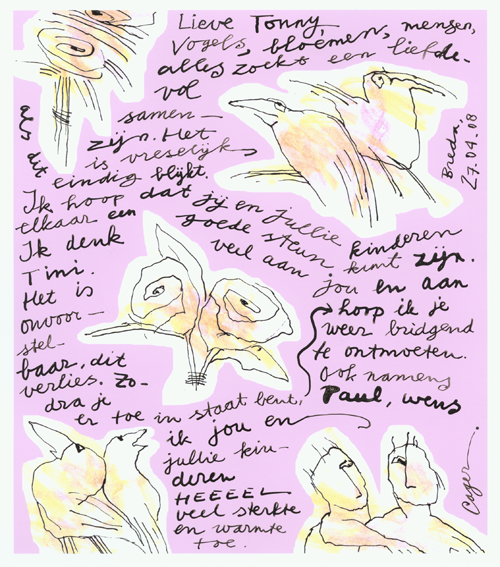 Lieve Tonny,
Vogels, bloemen, mensen,
alles zoekt een liefde-
vol
samen-
zijn. Het
is vreselijk
als dit
eindig blijkt.
Ik hoop dat jij en jullie kinderen
elkaar een goede steun kunt zijn.
Ik denk veel aan jou en aan
Tini.
Het is
onvoor-
stel-
baar, dit
verlies. Zo-
dra je
er toe in staat bent,
hoop ik je
weer bridgend
te ontmoeten.
Ook namens
Paul, wens
ik jou en
jullie kin-
deren
HEEEEL
veel sterkte
en warmte
toe.
Breda,
27.04.08